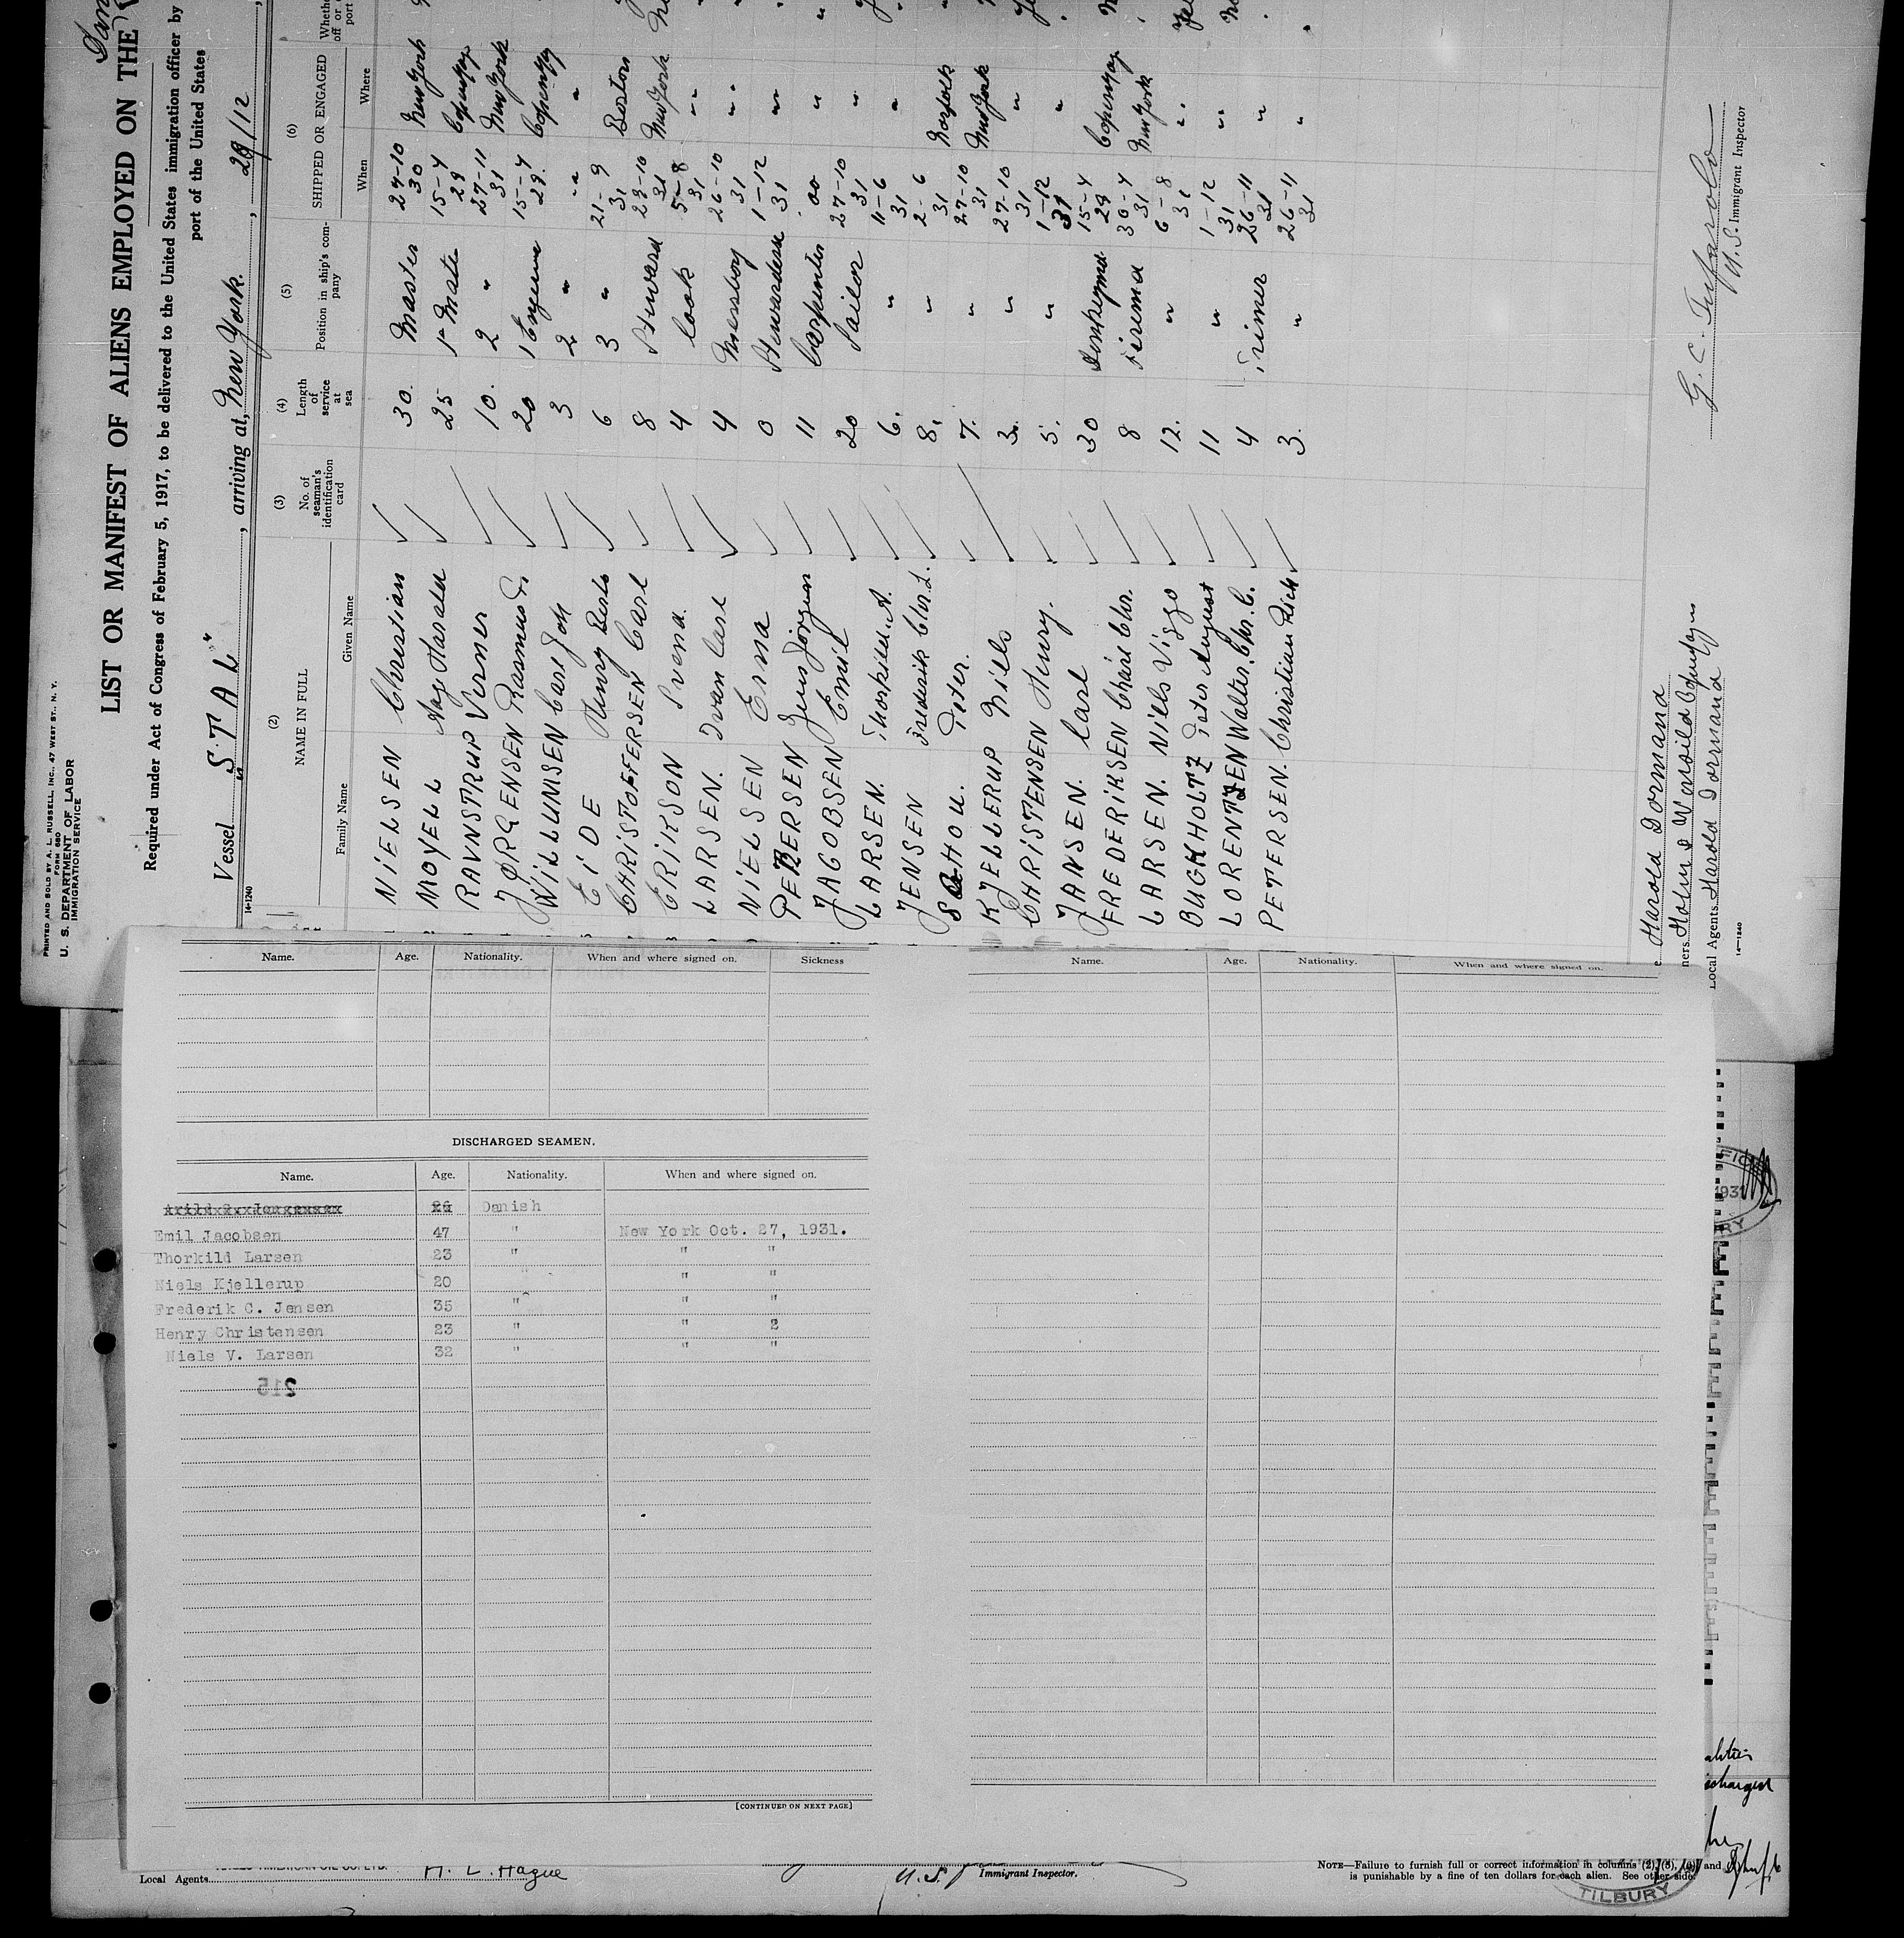 PRINTED AND SOLD BY A. L. RUSSELL, INC., 47 WEST ST., N. Y.
FORM 680
U. S. DEPARTMENT OF LABOR
IMMIGRATION SERVICE
LIST OR MANIFEST OF ALIENS EMPLOYED ON THE
Required under Act of Congress of February 5, 1917, to be delivered to the United States immigration officer by
port of the United States
Vessel "STAL", arriving at, New York., 29/12
14-1240
(2) (3) (4) (5) (6)
NAME IN FULL No. of seaman's identification card Length of service at sea Position in ship's company SHIPPED OR ENGAGED
Family Name Given Name When Where
NIELSEN Christian 30. Master 27-10 30 New York
MOYELL Aage Harald 25 1 Mate 15-4 29
RAVNSTRUP Verner 10. 2 " 27-11 31 New York
JØRGENSEN Rasmus 20 1 Engine 15-4 29.
Carl 3 2 " "
EIDE Henry 6 3 " 21-9 31 Boston
CHRISTOFFERSEN Carl 8 Steward 29-10 31 New York
ERIKSON Svend. 4 Cook 5-8 31 "
LARSEN. Ivan Carl 4 Messboy 26-10 31 "
NIELSEN Erna 0 Stewardess 1-12 31 "
PEDERSEN Jens Jörgen 11 Carpenter "
JACOBSEN Emil 20 Sailor 27-10 31 "
LARSEN. Thorkild. A. 6. " 11-6 31 "
JENSEN Frederik Chr. L. 8. " 2-6 31 Norfolk
SCHOU. Peter. 7. " 27-10 31 New York
KJELLERUP Niels 3. " 27-10 31 "
CHRISTENSEN Henry. 5. " 1-12 31 "
JANSEN. Carl 30 15-4 29
FREDERIKSEN Charl Chr. 8 Firema 30-4 31 New York
LARSEN. Niels Viggo 12. " 6-8 31 "
BUGKHOLTZ Peter August 11 " 1-12 31 "
LORENTZEN Walter. Chr. C. 4 Trimer 26-11 31 "
PETERSEN. Christian Rich 3. " 26-11 31 "
Harold Dormand
Local Agents Harold Dormand
14-1240
U.S. Immigrant Inspector
Name. Age. Nationality. When and where signed on. Sickness
Name. Age. Nationality. When and where signed on.
DISCHARGED SEAMEN.
Name. Age. Nationality. When and where signed on.
26 Danish
Emil Jacobsen 47 " New York Oct. 27, 1931.
Thorkild Larsen 23 " " "
Niels Kjellerup 20 " " "
Frederik C. Jensen 35 " " "
Henry Christensen 23 " " 2
Niels V. Larsen 32 " " "
215
[CONTINUED ON NEXT PAGE]
Local Agents H. L. Hague
U.S. Immigrant Inspector.
NOTE—Failure to furnish full or correct information in columns (2), (3), and
is punishable by a fine of ten dollars for each alien. See other side.
TILBURY